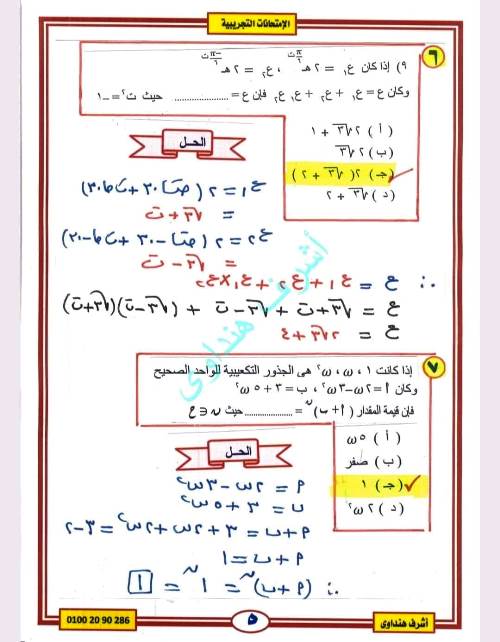 الإمتحانات التجريبية
٦
٩) إذا كان ع١ = ٢ هـ^(π/٦ ت) ، ع٢ = ٢ هـ^(-π/٦ ت)
وكان ع = ع١ + ع٢ + ع١ ع٢ فإن ع = .................. حيث ت٢ = -١
( أ ) ٢√٣ + ١
(ب) ٢√٣
(جـ) ٢(√٣ + ٢)
( د ) √٣ + ٢
الحـل
ع١ = ٢ (حتا٣٠ + ت حا٣٠)
= √٣ + ت
ع٢ = ٢ (حتا-٣٠ + ت حا-٣٠)
= √٣ - ت
∴ ع = ع١ + ع٢ + ع١ × ع٢
ع = √٣ + ت + √٣ - ت + (√٣ - ت)(√٣ + ت)
ع = ٢√٣ + ٤
أشرف هنداوى
٧
إذا كانت ١ ، ω ، ω٢ هى الجذور التكعيبية للواحد الصحيح
وكان أ = ٢ω - ٣ω٢ ، ب = ٣ + ٥ω٢
فإن قيمة المقدار (أ + ب)^ن = .................. حيث ن ∈ ع
( أ ) ٥ω
(ب) صفر
(جـ) ١
( د ) ٢ω٢
الحـل
أ = ٢ω - ٣ω٢
ب = ٣ + ٥ω٢
أ + ب = ٣ + ٢ω + ٢ω٢ = ٣ - ٢
أ + ب = ١
∴ (أ + ب)^ن = ١^ن = ١
0100 20 90 286
٥
أشرف هنداوى